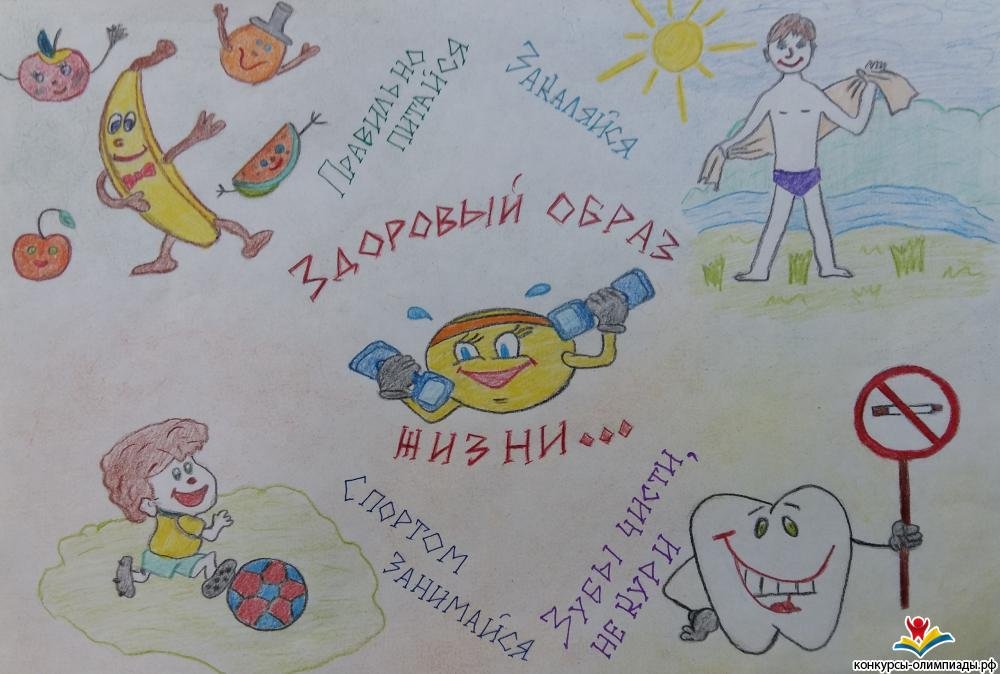 Правильно
питайся
Закаляйся
Здоровый образ
жизни...
спортом
занимайся
Зубы чисти,
не кури
конкурсы-олимпиады.рф